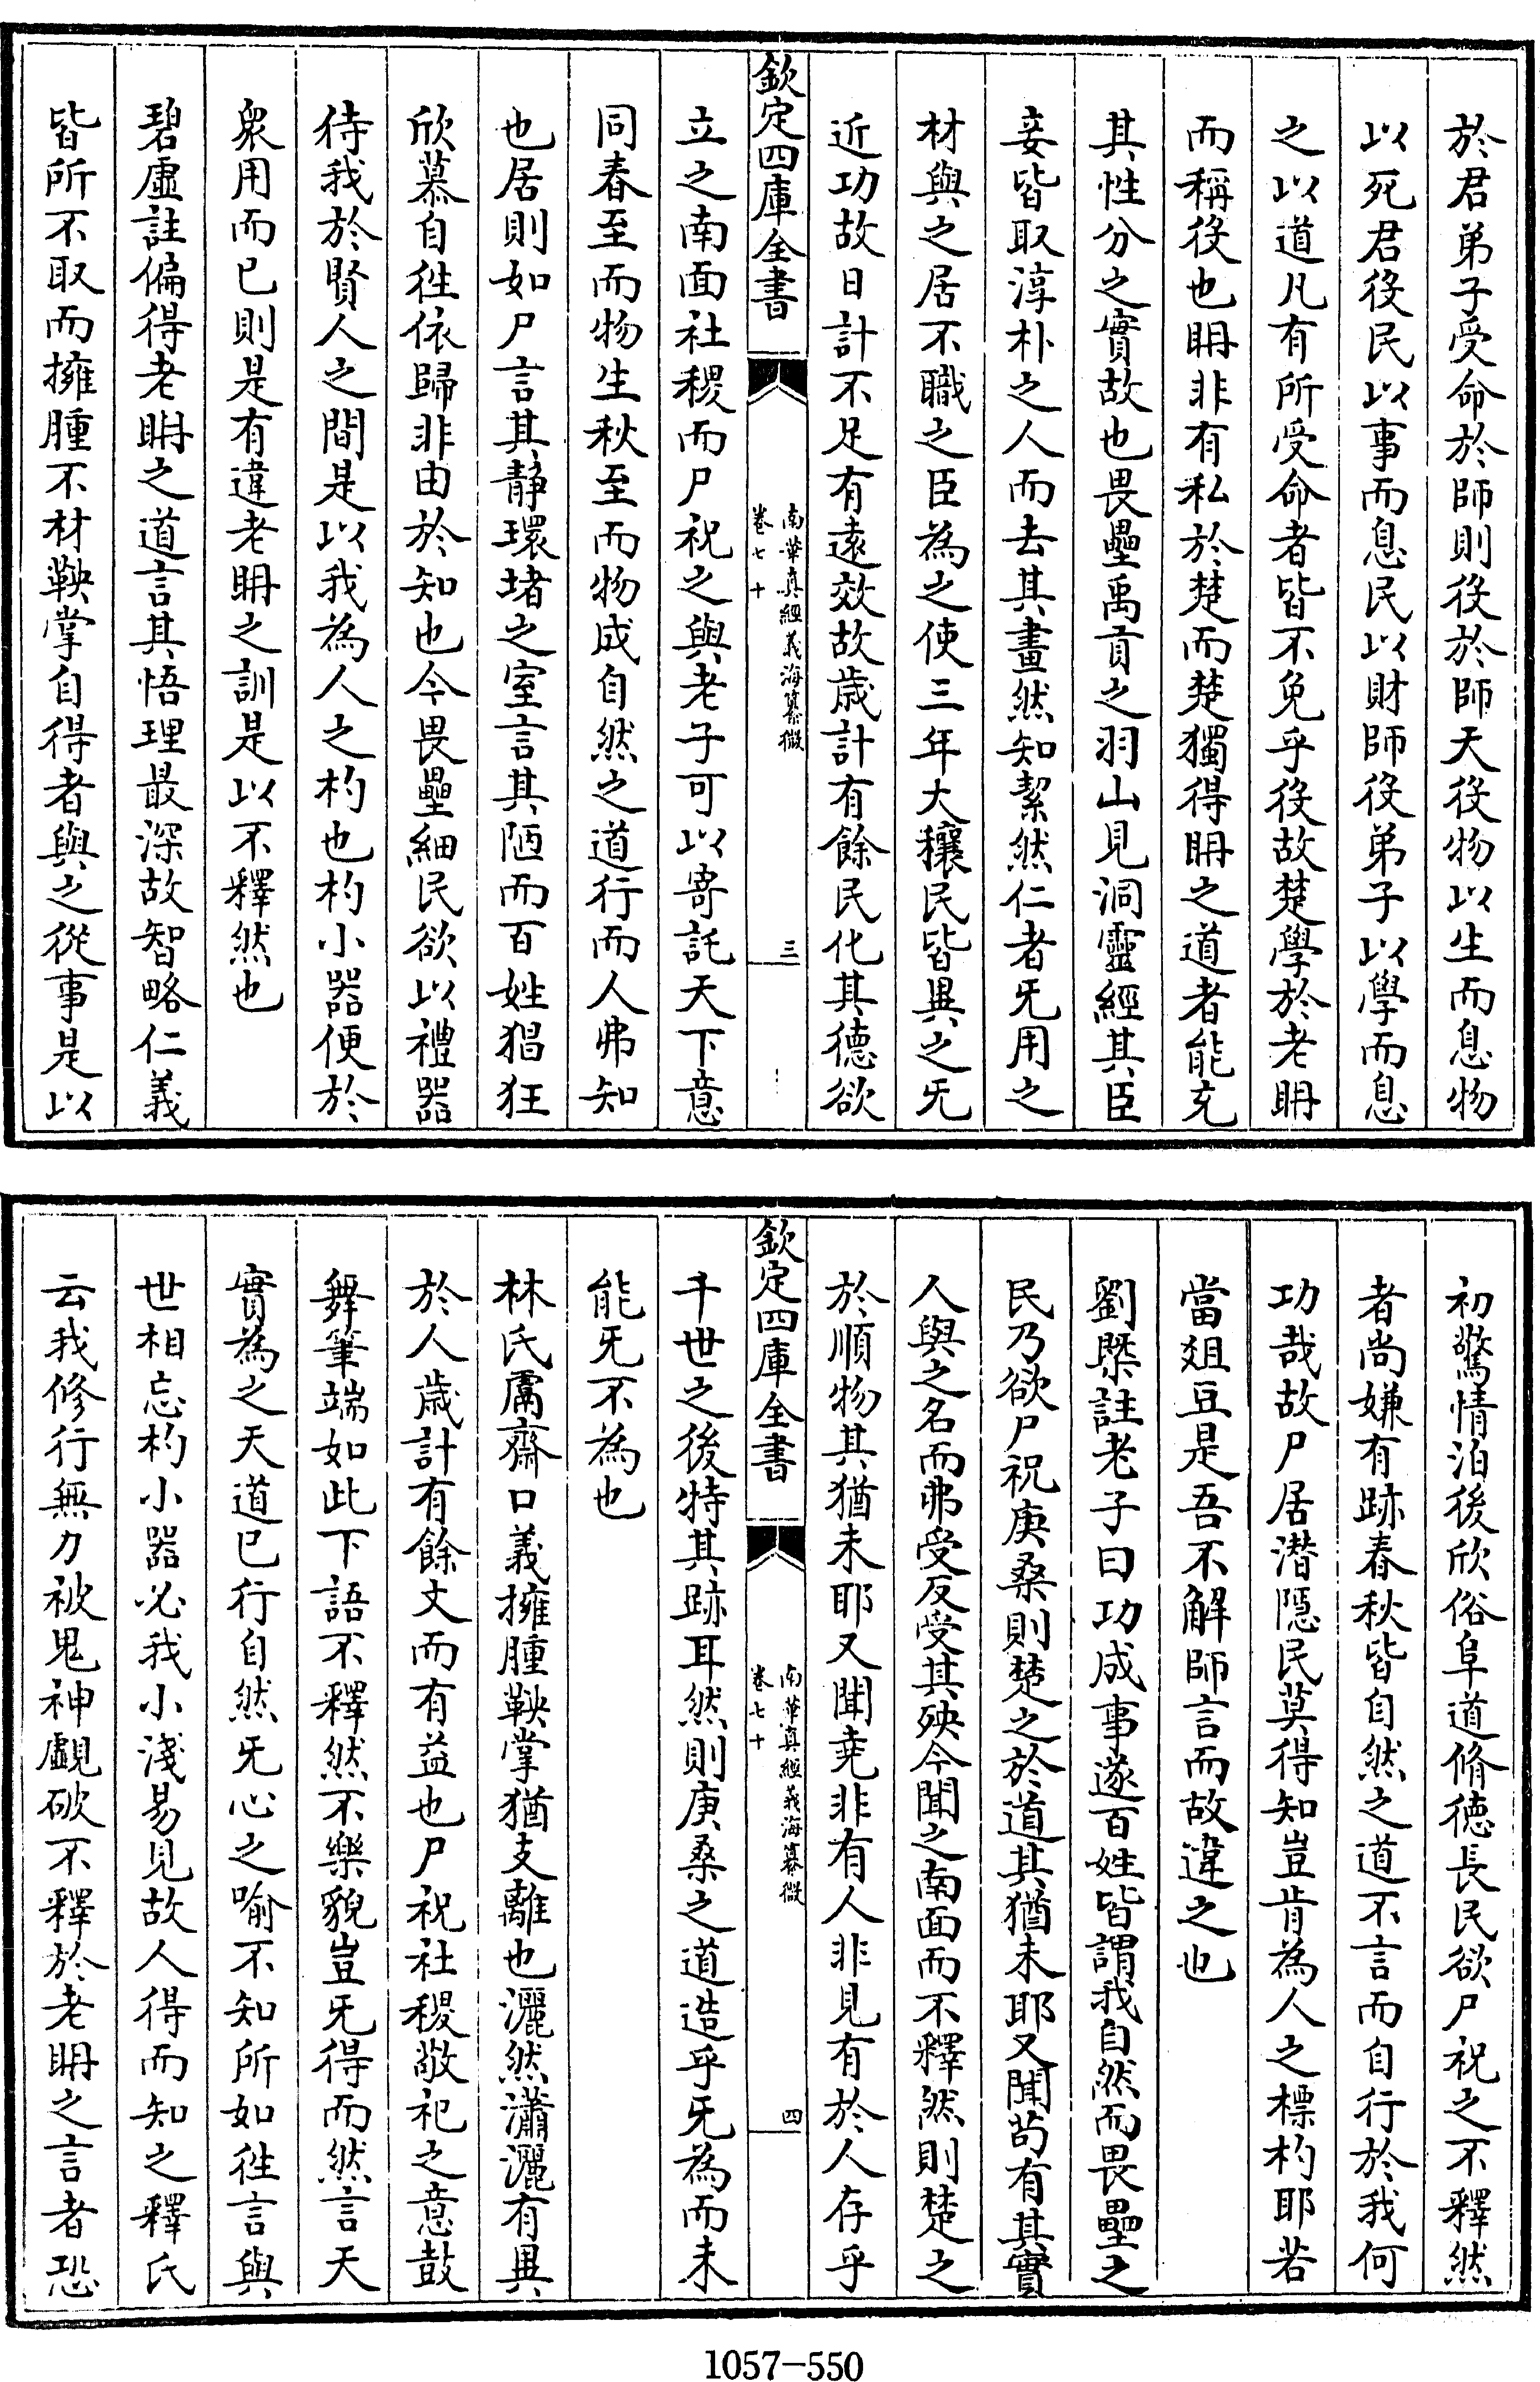 於君弟子受命於師則役於師天役物以生而息物
以死君役民以事而息民以財師役弟子以學而息
之以道凡有所受命者皆不免乎役故楚學於老聃
而稱役也聃非有私於楚而楚獨得聃之道者能充
其性分之實故也畏壘禹貢之羽山見洞靈經其臣
妾皆取淳朴之人而去其畫然知絜然仁者旡用之
材與之居不職之臣為之使三年大穰民皆異之旡
近功故日計不足有遠效故歲計有餘民化其德欲
欽定四庫全書
南華真經義海纂微
卷七十
三
立之南面社稷而尸祝之與老子可以寄託天下意
同春至而物生秋至而物成自然之道行而人弗知
也居則如尸言其靜環堵之室言其陋而百姓猖狂
欣慕自徃依歸非由於知也今畏壘細民欲以禮器
待我於賢人之間是以我為人之杓也杓小器便於
衆用而已則是有違老聃之訓是以不釋然也
碧虛註偏得老聃之道言其悟理最深故智略仁義
皆所不取而擁腫不材鞅掌自得者與之從事是以
初驚情泊後欣俗阜道脩德長民欲尸祝之不釋然
者尚嫌有跡春秋皆自然之道不言而自行於我何
功哉故尸居潛隱民莫得知豈肯為人之標杓耶若
當俎豆是吾不解師言而故違之也
劉槩註老子曰功成事遂百姓皆謂我自然而畏壘之
民乃欲尸祝庚桑則楚之於道其猶未耶又聞苟有其實
人與之名而弗受反受其殃今聞之南面而不釋然則楚之
於順物其猶未耶又聞堯非有人非見有於人存乎
欽定四庫全書
南華真經義海纂微
卷七十
四
千世之後特其跡耳然則庚桑之道造乎旡為而未
能旡不為也
林氏鬳齋口義擁腫鞅掌猶支離也灑然瀟灑有異
於人歲計有餘丈而有益也尸祝社稷敬祀之意鼓
舞筆端如此下語不釋然不樂貌豈旡得而然言天
實為之天道已行自然旡心之喻不知所如徃言與
世相忘杓小器必我小淺易見故人得而知之釋氏
云我修行無力被鬼神覷破不釋於老聃之言者恐
1057-550